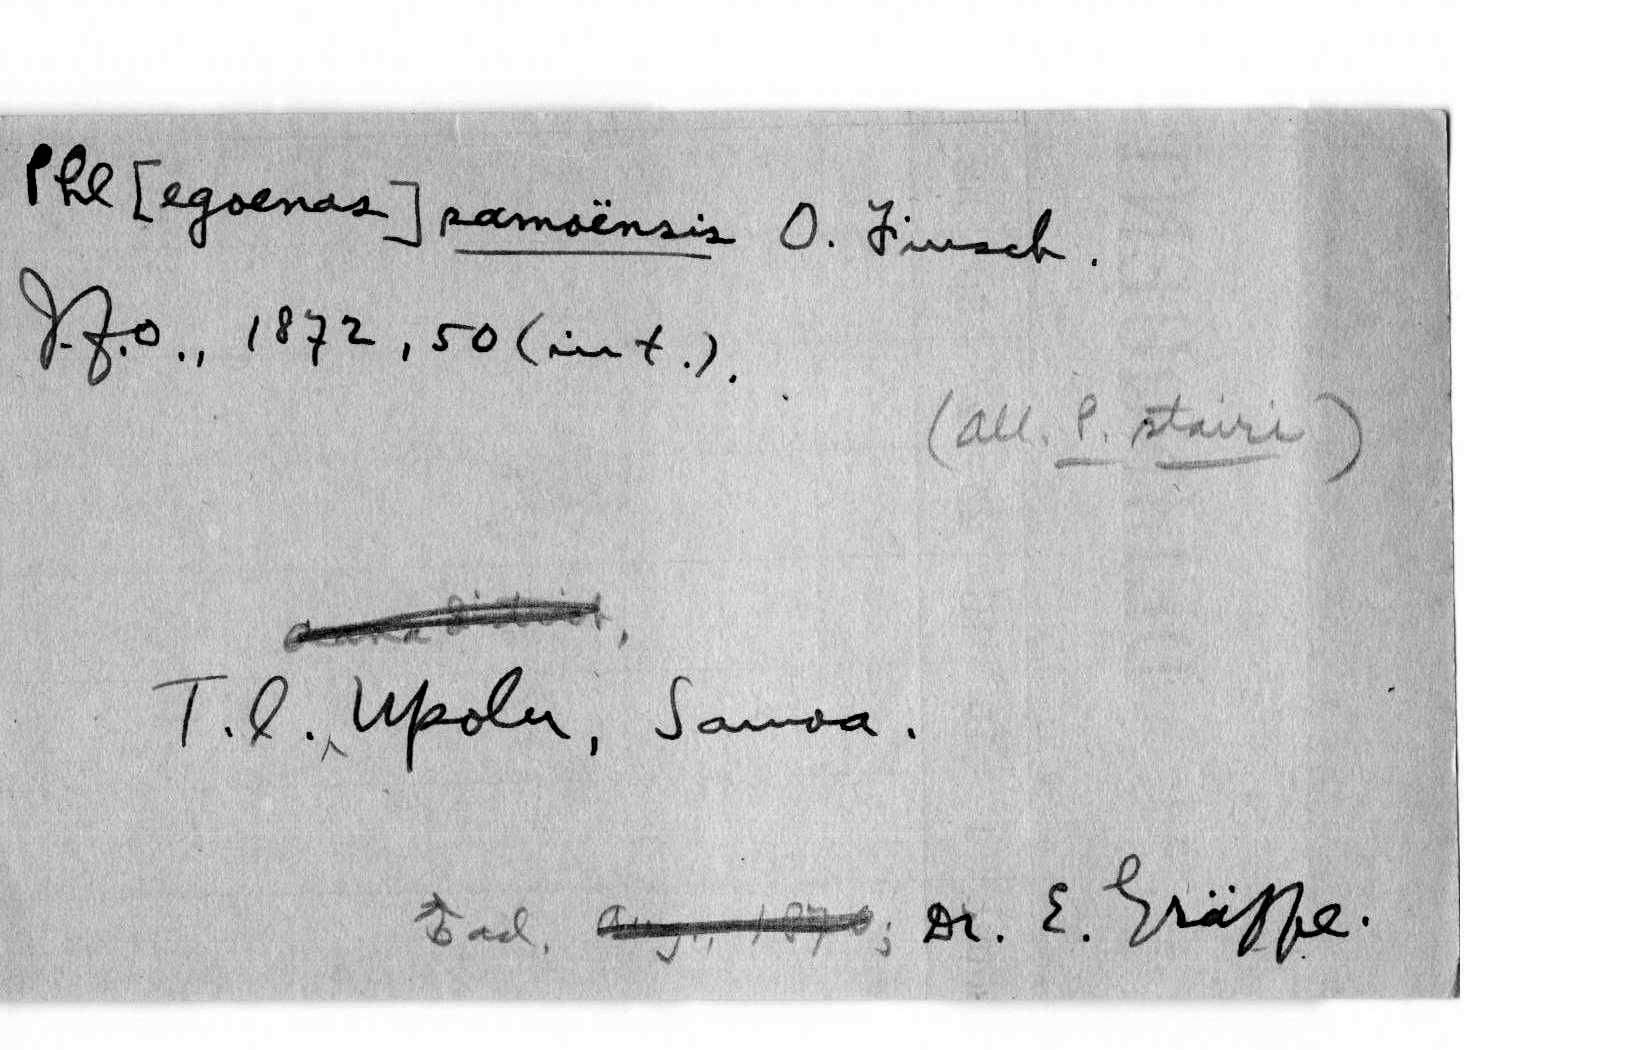 Phl[egoenas] samoënsis O. Finsch.
J.f.O., 1872, 50 (int.).
(all. P. stairi)
T.l. Upolu, Samoa.
♀ad. Aug., 1870; Dr. E. Gräffe.